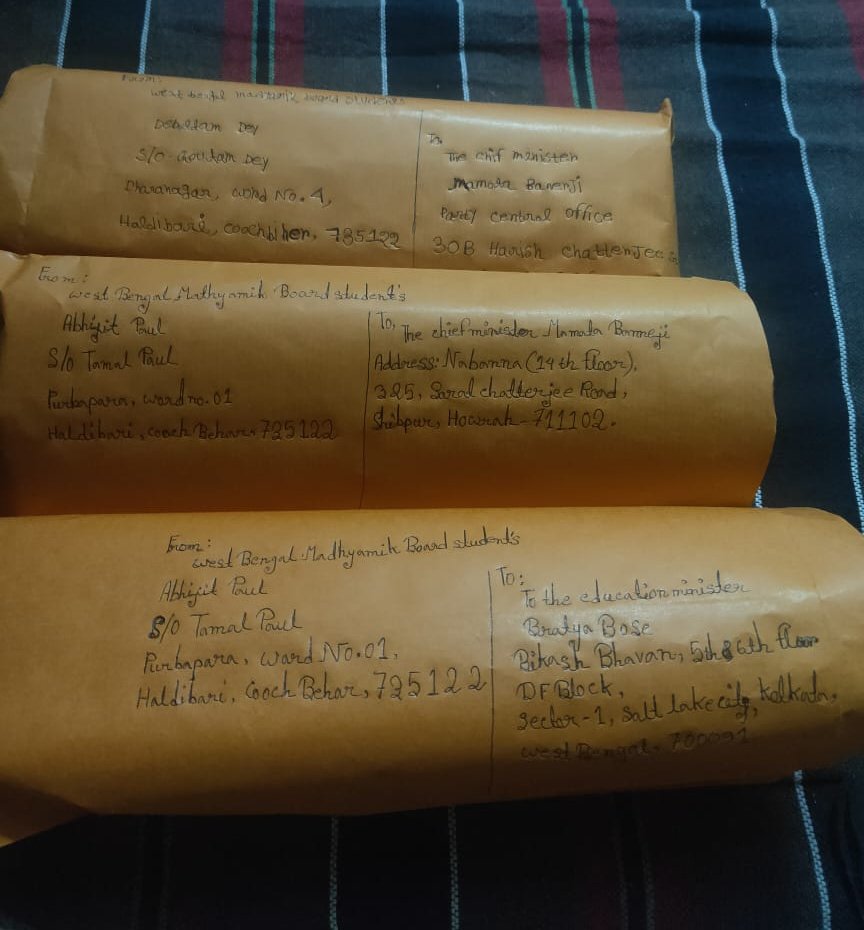 From:
west bengal madhyamik board students
Debottam Dey
S/O- Goutam Dey
word No. 4,
Haldibari, coochbiher, 735122
To
The chif minister
Mamata Banerji
Party central office
30B Harish chatterjee
From:
west Bengal Mathyamik Board student's
Abhijit Paul
S/o Tamal Paul
Purbapara, ward no. 01
Haldibari, cooch Behar, 735122
To,
The chief minister Mamata Bannerji
Address: Nabanna (14th floor),
325, Sarat chatterjee Road,
Shibpur, Howrah - 711102.
From:
west Bengal Madhyamik Board student's
Abhijit Paul
S/o Tamal Paul
Purbapara, ward No. 01,
Haldibari, Cooch Behar, 735122
To:
To the education minister
Bratya Bose
Bikash Bhavan, 5th & 6th floor
DF Block,
Sector-1, Salt lake city, Kolkata,
west Bengal, 700091